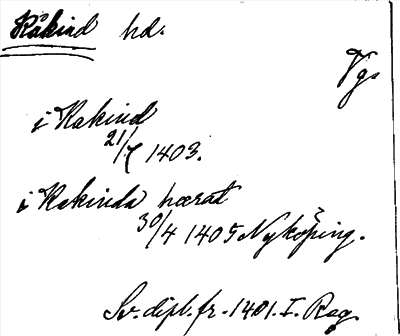 Kåkind hd.
Vg.
i Kakind
21/7 1403.
i Kakinda hærat
30/4 1405 Nyköping.
Sv. dipl. fr. 1401. I. Reg.